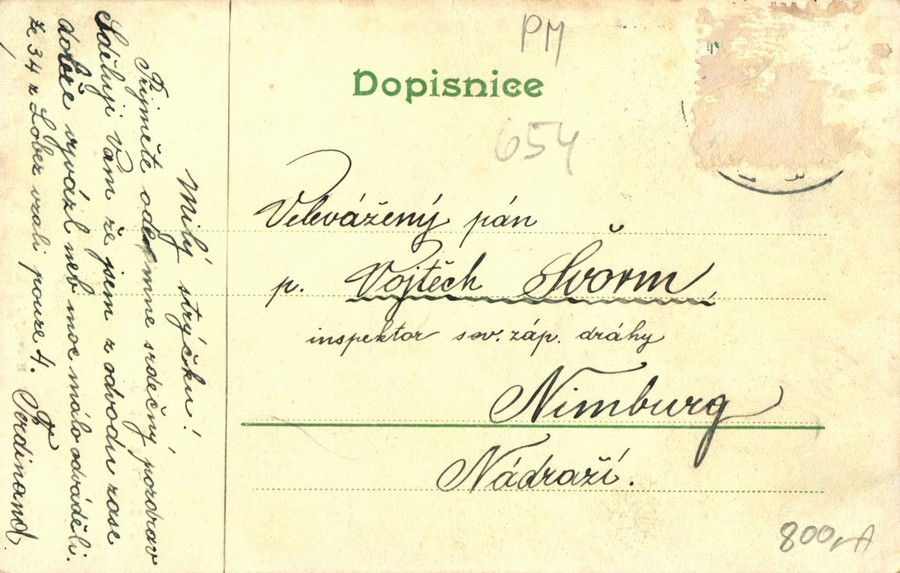 PM
Dopisnice
654
Velevážený pán
p. Vojtěch Švorm
inspektor sev. záp. dráhy
Nimburg
Nádraží.
800,-A
Milý strýčku!
Přijměte odemne srdečný pozdrav
Sděluji Vám že jsem z odvodu zase
dobře vyvázl neb moc málo odváděli.
ze 34 z Lobez vzali pouze 4. Ferdinand.